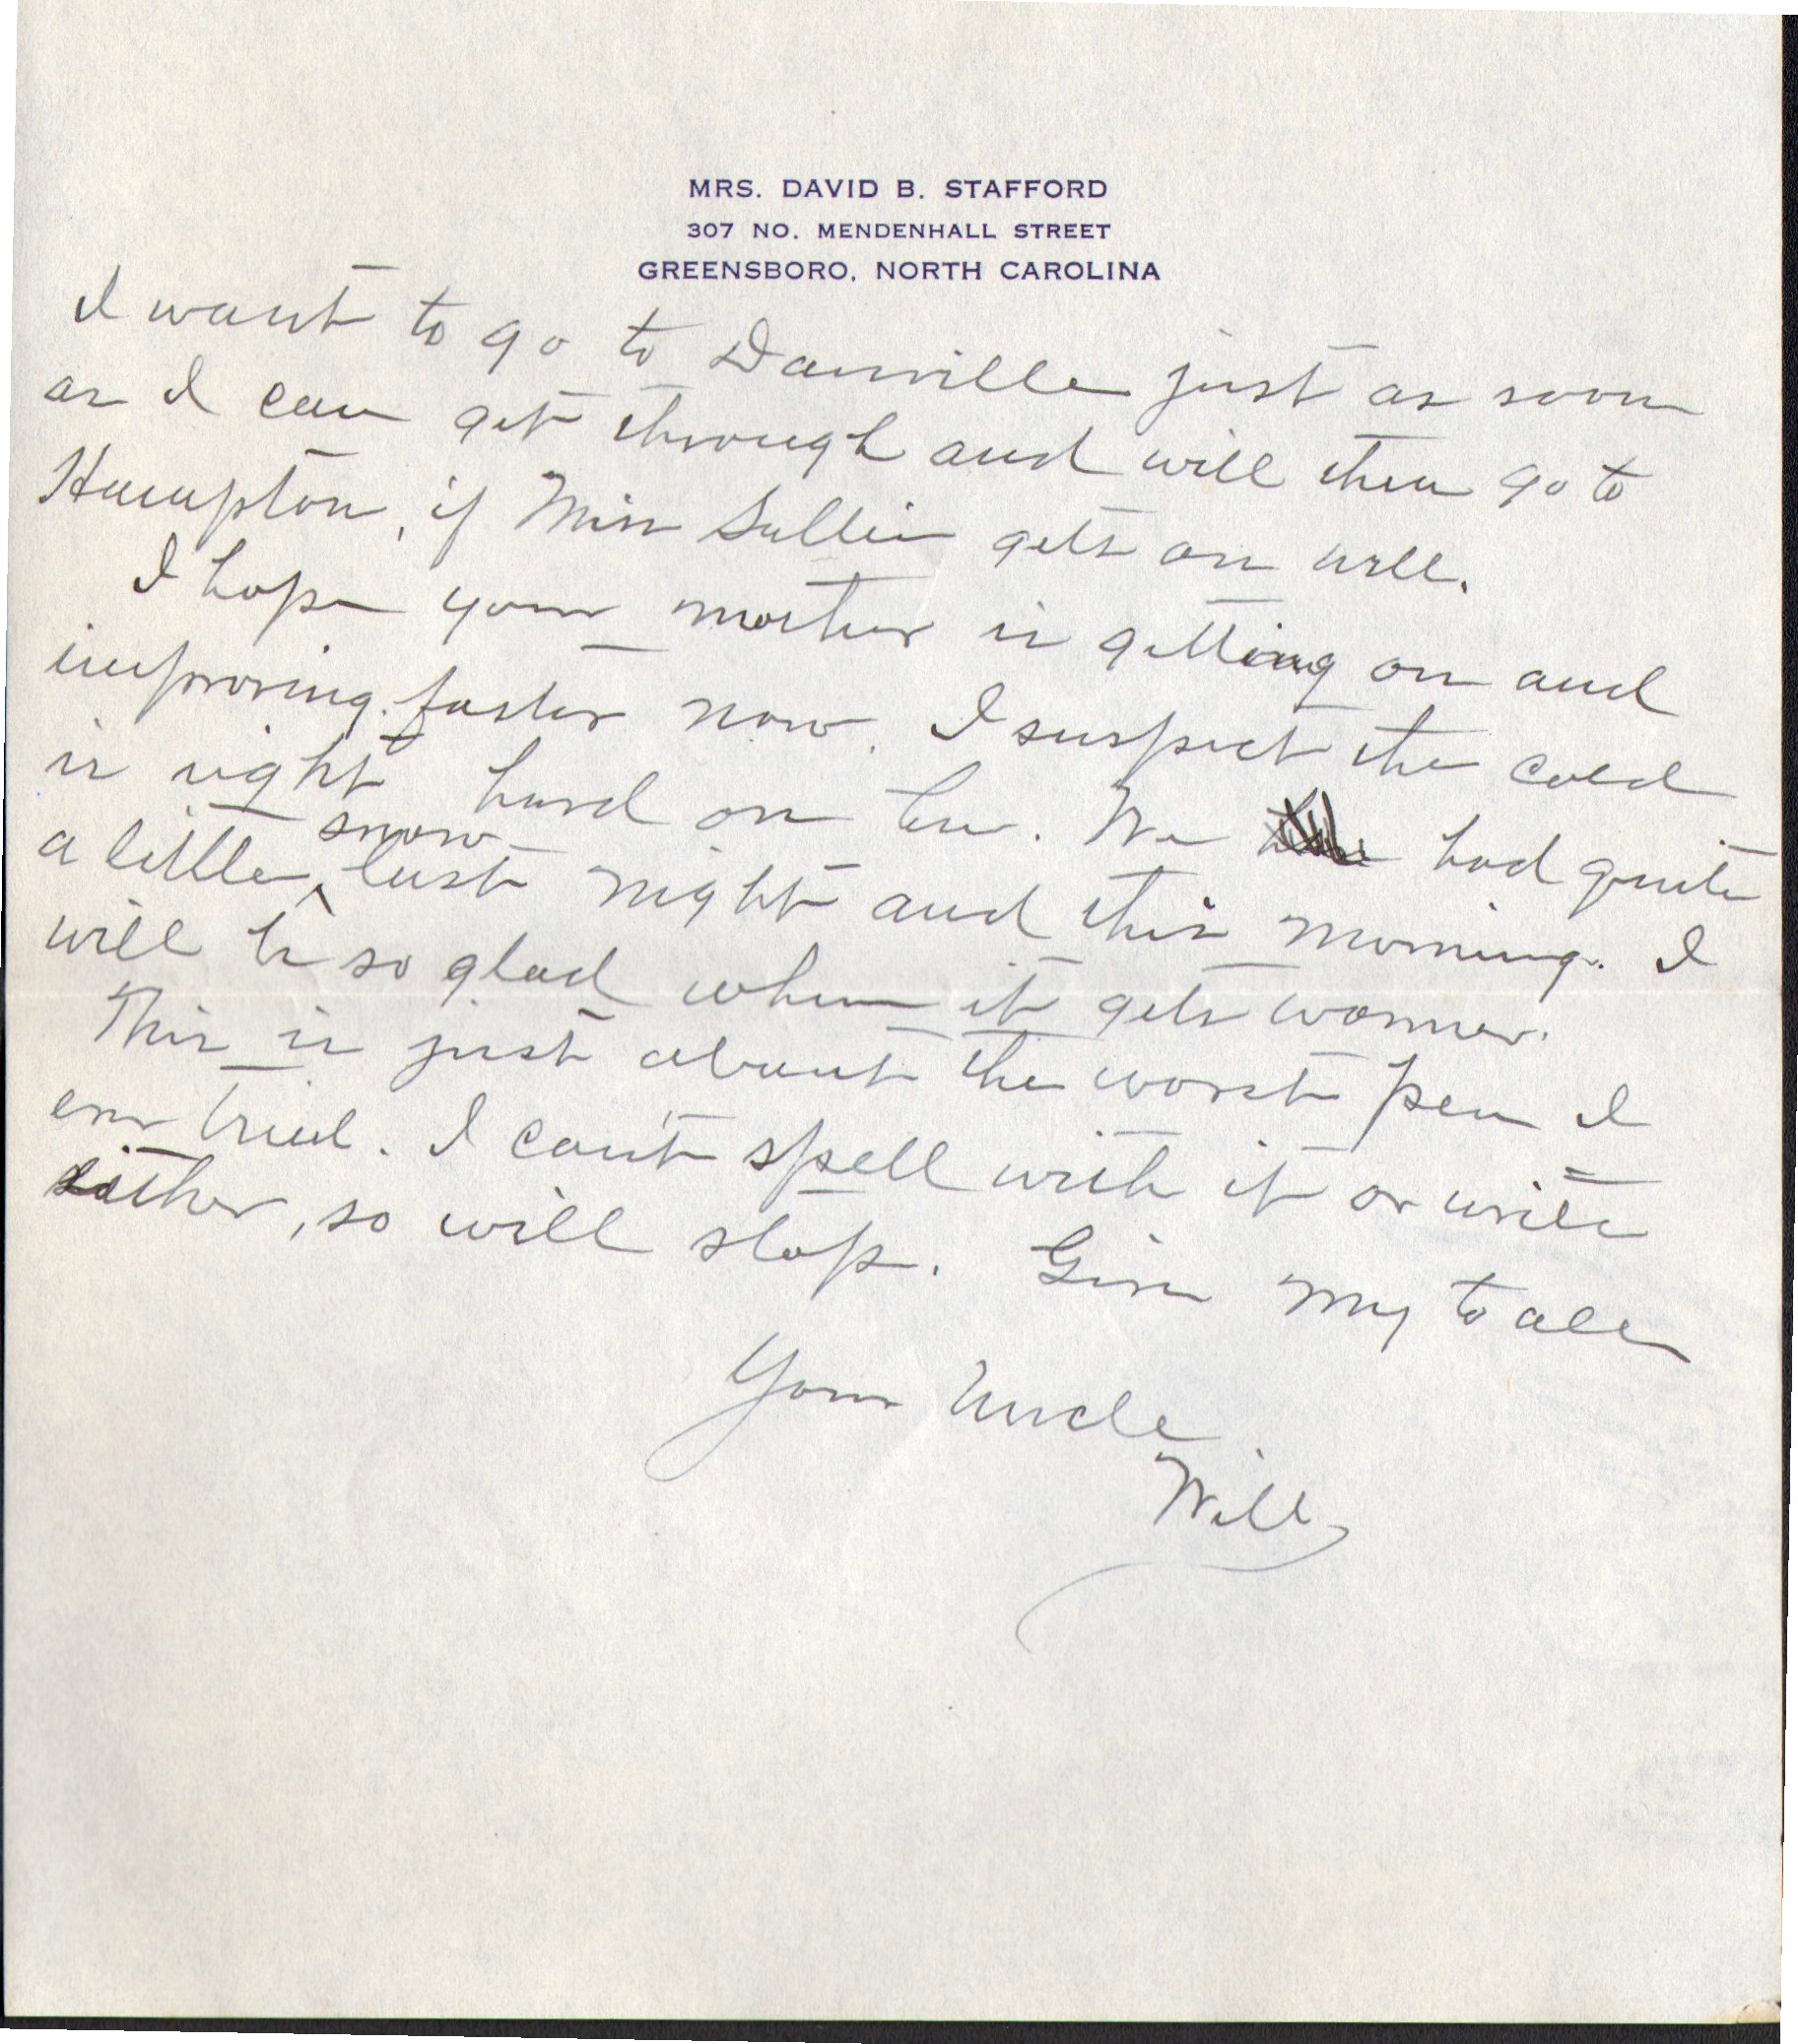 MRS. DAVID B. STAFFORD
307 NO. MENDENHALL STREET
GREENSBORO, NORTH CAROLINA
I want to go to Danville just as soon
as I can get through and will then go to
Hampton, if Miss Sallie gets on well.
I hope your mother is getting on and
improving faster now. I suspect the cold
is right hard on her. We had quite
a little snow last night and this morning. I
will be so glad when it gets warmer.
This is just about the worst pen I
ever tried. I can't spell with it or write
either, so will stop. Give my to all
Your Uncle
Will